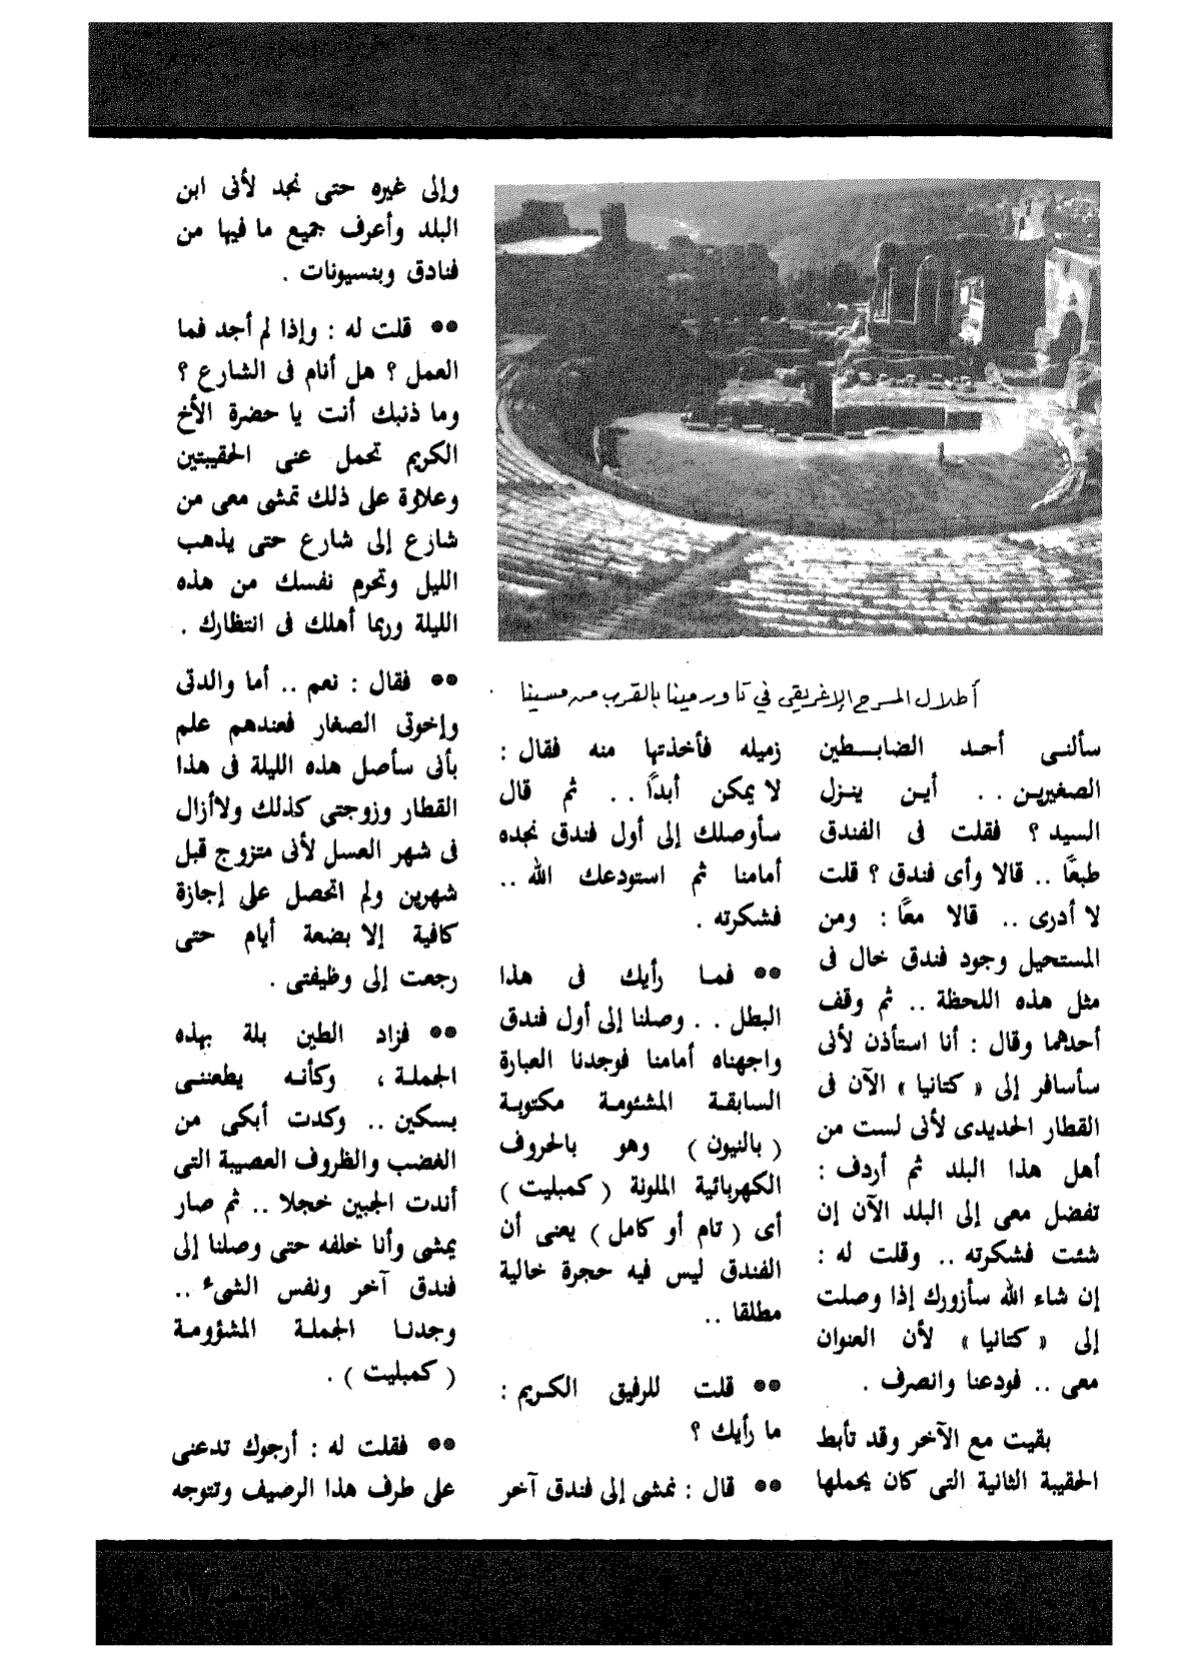 أطلال المسرح الإغريقي في تاورمينا بالقرب من مسينا .
سألنى أحد الضابطين
الصغيرين . . أين ينزل
السيد ؟ فقلت فى الفندق
طبعًا .. قالا وأى فندق ؟ قلت
لا أدرى .. قالا معًا : ومن
المستحيل وجود فندق خال فى
مثل هذه اللحظة .. ثم وقف
أحدهما وقال : أنا استأذن لأنى
سأسافر إلى « كتانيا » الآن فى
القطار الحديدى لأنى لست من
أهل هذا البلد ثم أردف :
تفضل معى إلى البلد الآن إن
شئت فشكرته .. وقلت له :
إن شاء الله سأزورك إذا وصلت
إلى « كتانيا » لأن العنوان
معى .. فودعنا وانصرف .
بقيت مع الآخر وقد تأبط
الحقيبة الثانية التى كان يحملها
زميله فأخذتها منه فقال :
لا يمكن أبدًا . . ثم قال
سأوصلك إلى أول فندق نجده
أمامنا ثم استودعك الله ..
فشكرته .
** فما رأيك فى هذا
البطل . . وصلنا إلى أول فندق
واجهناه أمامنا فوجدنا العبارة
السابقة المشئومة مكتوبة
( بالنيون ) وهو بالحروف
الكهربائية الملونة ( كمبليت )
أى ( تام أو كامل ) يعنى أن
الفندق ليس فيه حجرة خالية
مطلقا ..
** قلت للرفيق الكريم :
ما رأيك ؟
** قال : نمشى إلى فندق آخر
وإلى غيره حتى نجد لأنى ابن
البلد وأعرف جميع ما فيها من
فنادق وبنسيونات .
** قلت له : وإذا لم أجد فما
العمل ؟ هل أنام فى الشارع ؟
وما ذنبك أنت يا حضرة الأخ
الكريم تحمل عنى الحقيبتين
وعلاوة على ذلك تمشى معى من
شارع إلى شارع حتى يذهب
الليل وتحرم نفسك من هذه
الليلة وربما أهلك فى انتظارك .
** فقال : نعم .. أما والدتى
وإخوتى الصغار فعندهم علم
بأنى سأصل هذه الليلة فى هذا
القطار وزوجتى كذلك ولاأزال
فى شهر العسل لأنى متزوج قبل
شهرين ولم اتحصل على إجازة
كافية إلا بضعة أيام حتى
رجعت إلى وظيفتى .
** فزاد الطين بلة بهذه
الجملة ، وكأنه يطعننى
بسكين .. وكدت أبكى من
الغضب والظروف العصيبة التى
أندت الجبين خجلا .. ثم صار
يمشى وأنا خلفه حتى وصلنا إلى
فندق آخر ونفس الشىء ..
وجدنا الجملة المشؤومة
( كمبليت ) .
** فقلت له : أرجوك تدعنى
على طرف هذا الرصيف وتتوجه